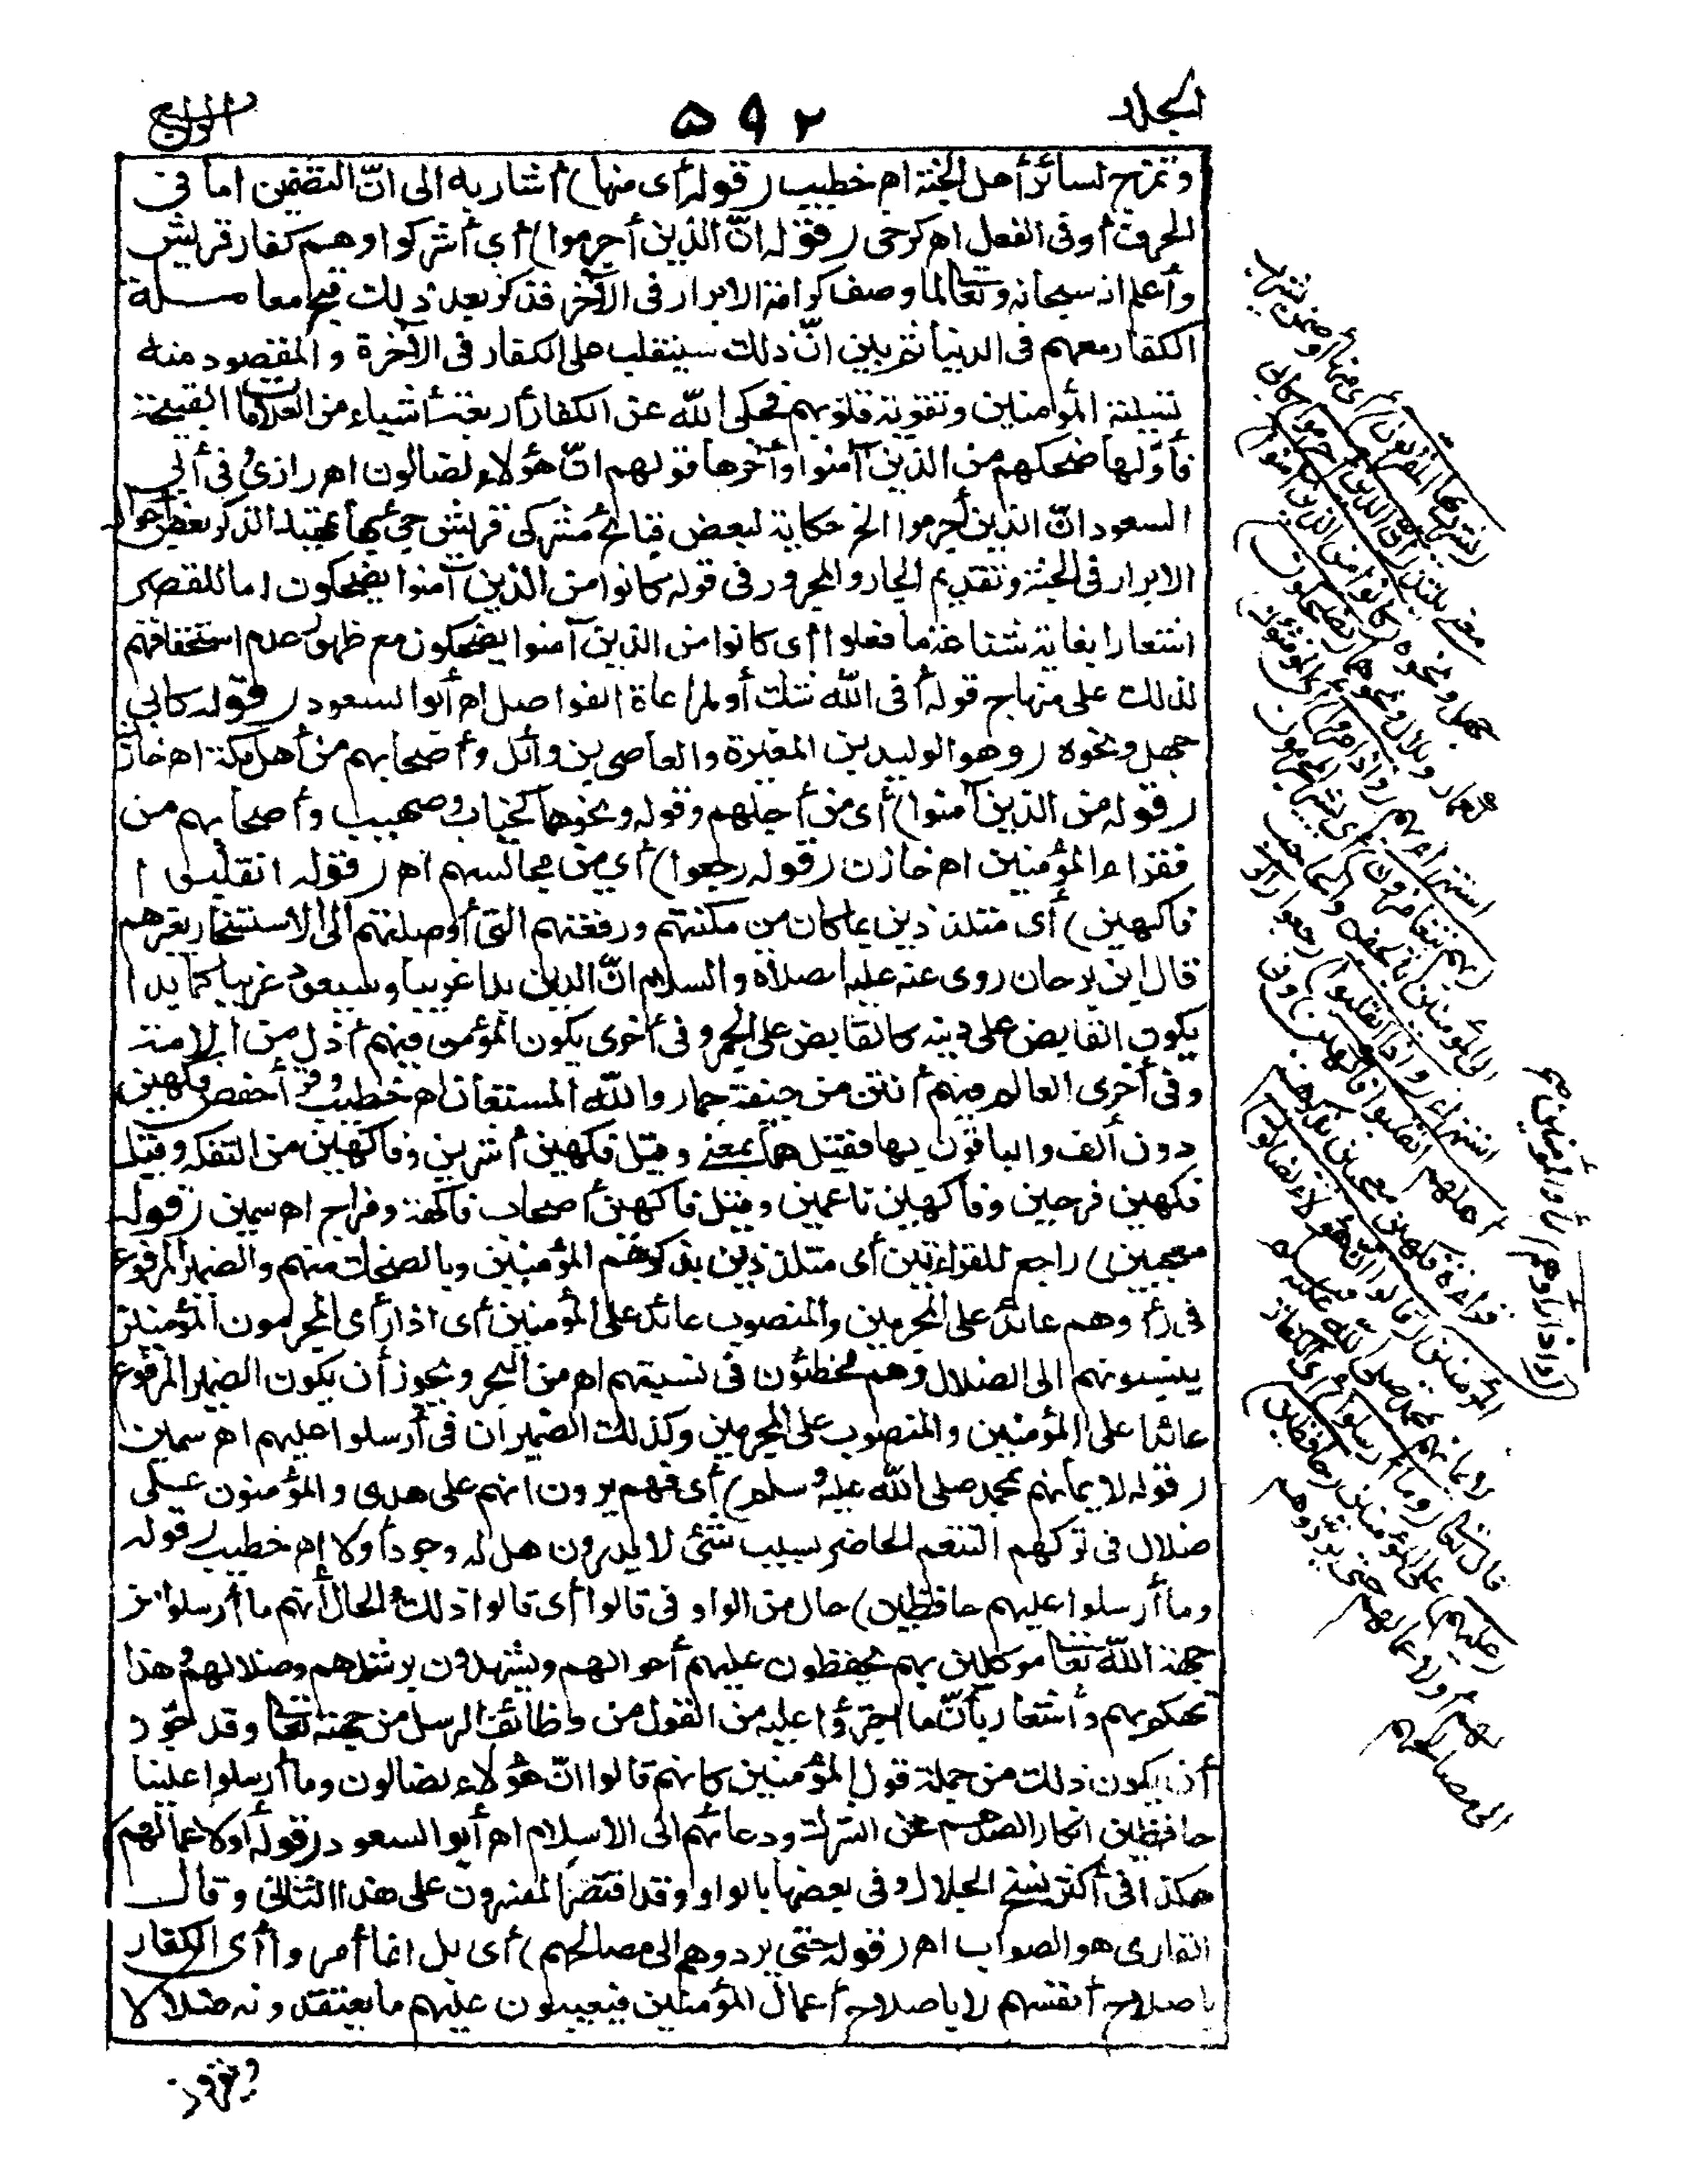 المجلد
٥٩٢
الرابع
وتمزج لسائر أهل الجنة اه خطيب (قوله أى منها) أشار به الى انّ التضمين اما فى
الحرف أو فى الفعل اه كرخى (قوله انّ الذين أجرموا) أى أشركوا وهم كفار قريش
وأعلم انه سبحانه وتعالى لما وصف كرامة الابرار فى الآخرة ذكر بعد ذلك قبح معاملة
الكفار معهم فى الدنيا ثم بين انّ ذلك سينقلب على الكفار فى الآخرة والمقصود منه
تسلية المؤمنين وتقوية قلوبهم فحكى الله عن الكفار أربعة أشياء من العلامات القبيحة
فأوّلها ضحكهم من الذين آمنوا وآخرها قولهم انّ هؤلاء لضالون اه رازى وفى أبى
السعود انّ الذين أجرموا الخ حكاية لبعض قبائح مشركى قريش جئ بها تمهيدا لذكر بعض أحوال
الابرار فى الجنة وتقديم الجار والمجرور فى قوله كانوا من الذين آمنوا يضحكون اما للقصر
اشعارا بغاية شناعة ما فعلوا أى كانوا من الذين آمنوا يضحكون مع ظهور عدم استحقاقهم
لذلك على منهاج قوله أفى الله شك أو لمراعاة الفواصل اه أبو السعود (قوله كأبى
جهل ونحوه) وهو الوليد بن المغيرة والعاصى بن وائل وأصحابهم من أهل مكة اه خازن
(قوله من الذين آمنوا) أى من أجلهم وقوله ونحوهما كخباب وصهيب وأصحابهم من
فقراء المؤمنين اه خازن (قوله رجعوا) أى من مجالسهم اه (قوله انقلبوا
فاكهين) أى متلذذين بما كان من مكنتهم ورفعتهم التى أوصلتهم الى الاستسخار بغيرهم
قال ابن برجان روى عنه عليه الصلاة والسلام انّ الدين بدا غريبا وسيعود غريبا كما بدا
يكون القابض على دينه كالقابض على الجمر وفى أخرى يكون المؤمن فيهم أذل من الامة
وفى أخرى العالم فيهم أنتن من جيفة حمار والله المستعان اه خطيب وقرأ حفص فكهين
دون ألف والباقون بها فقيل هما بمعنى وقيل فكهين أشرين وفاكهين من التفكه وقيل
فكهين فرحين وفاكهين ناعمين وقيل فاكهين أصحاب فاكهة ومزاح اه سمين (قوله
معجبين) راجع للقراءتين أى متلذذين بذكرهم المؤمنين وبالضحك منهم والضمير المرفوع
فى رأوهم عائد على المجرمين والمنصوب عائد على المؤمنين أى اذا رأى المجرمون المؤمنين
ينسبونهم الى الضلال وهم مخطئون فى نسبتهم اه من البحر ويجوز أن يكون الضمير المرفوع
عائدا على المؤمنين والمنصوب على المجرمين وكذلك الضميران فى أرسلوا عليهم اه سمين
(قوله لايمانهم بمحمد صلى الله عليه وسلم) أى فهم يرون انهم على هدى والمؤمنون على
ضلال فى تركهم التنعم الحاضر بسبب شئ لا يدرون هل له وجود أولا اه خطيب (قوله
وما أرسلوا عليهم حافظين) حال من الواو فى قالوا أى قالوا ذلك والحال أنهم ما أرسلوا من
جهة الله تعالى موكلين بهم يحفظون عليهم أحوالهم ويشهدون برشدهم وضلالهم وهذا
تهكم بهم وأشعار بأنّ ما اجترؤا عليه من القول من وظائف الرسل من جهته تعالى وقد جوّز
أن يكون ذلك من جملة قول المؤمنين كانهم قالوا انّ هؤلاء لضالون وما أرسلوا علينا
حافظين انكارا لصدهم عن الشرك ودعائهم الى الاسلام اه أبو السعود (قوله أولاعمالهم)
هكذا فى أكثر نسخ الجلال وفى بعضها بالواو وقد اقتصر المفسرون على هذا الثانى وقال
القارى هو الصواب اه (قوله حتى يردوهم الى مصالحهم) أى بل انما أمروا أى الكفار
باصلاح أنفسهم لا باصلاح أعمال المؤمنين فيعيبون عليهم ما يعتقدونه ضلالا
يشرب بها المقربون) أى منها أو ضمن يشرب
معنى يلتذ (ان الذين أجرموا) كأبى
جهل ونحوه (كانوا من الذين آمنوا)
عمار وبلال ونحوهما (يضحكون)
استهزاء بهم (واذا مروا) أى المؤمنون
(بهم يتغامزون) أى يشير المجرمون
الى المؤمنين بالجفن والحاجب
استهزاء (واذا انقلبوا) رجعوا (الى
أهلهم انقلبوا فاكهين) وفى
قراءة فكهين معجبين بذكرهم
المؤمنين (واذا رأوهم) رأوا المؤمنين
(قالوا ان هؤلاء لضالون)
لايمانهم بمحمد صلى الله عليه وسلم
قال تعالى (وما أرسلوا) أى الكفار
(عليهم) على المؤمنين (حافظين)
لهم أولاعمالهم حتى يردوهم
الى مصالحهم